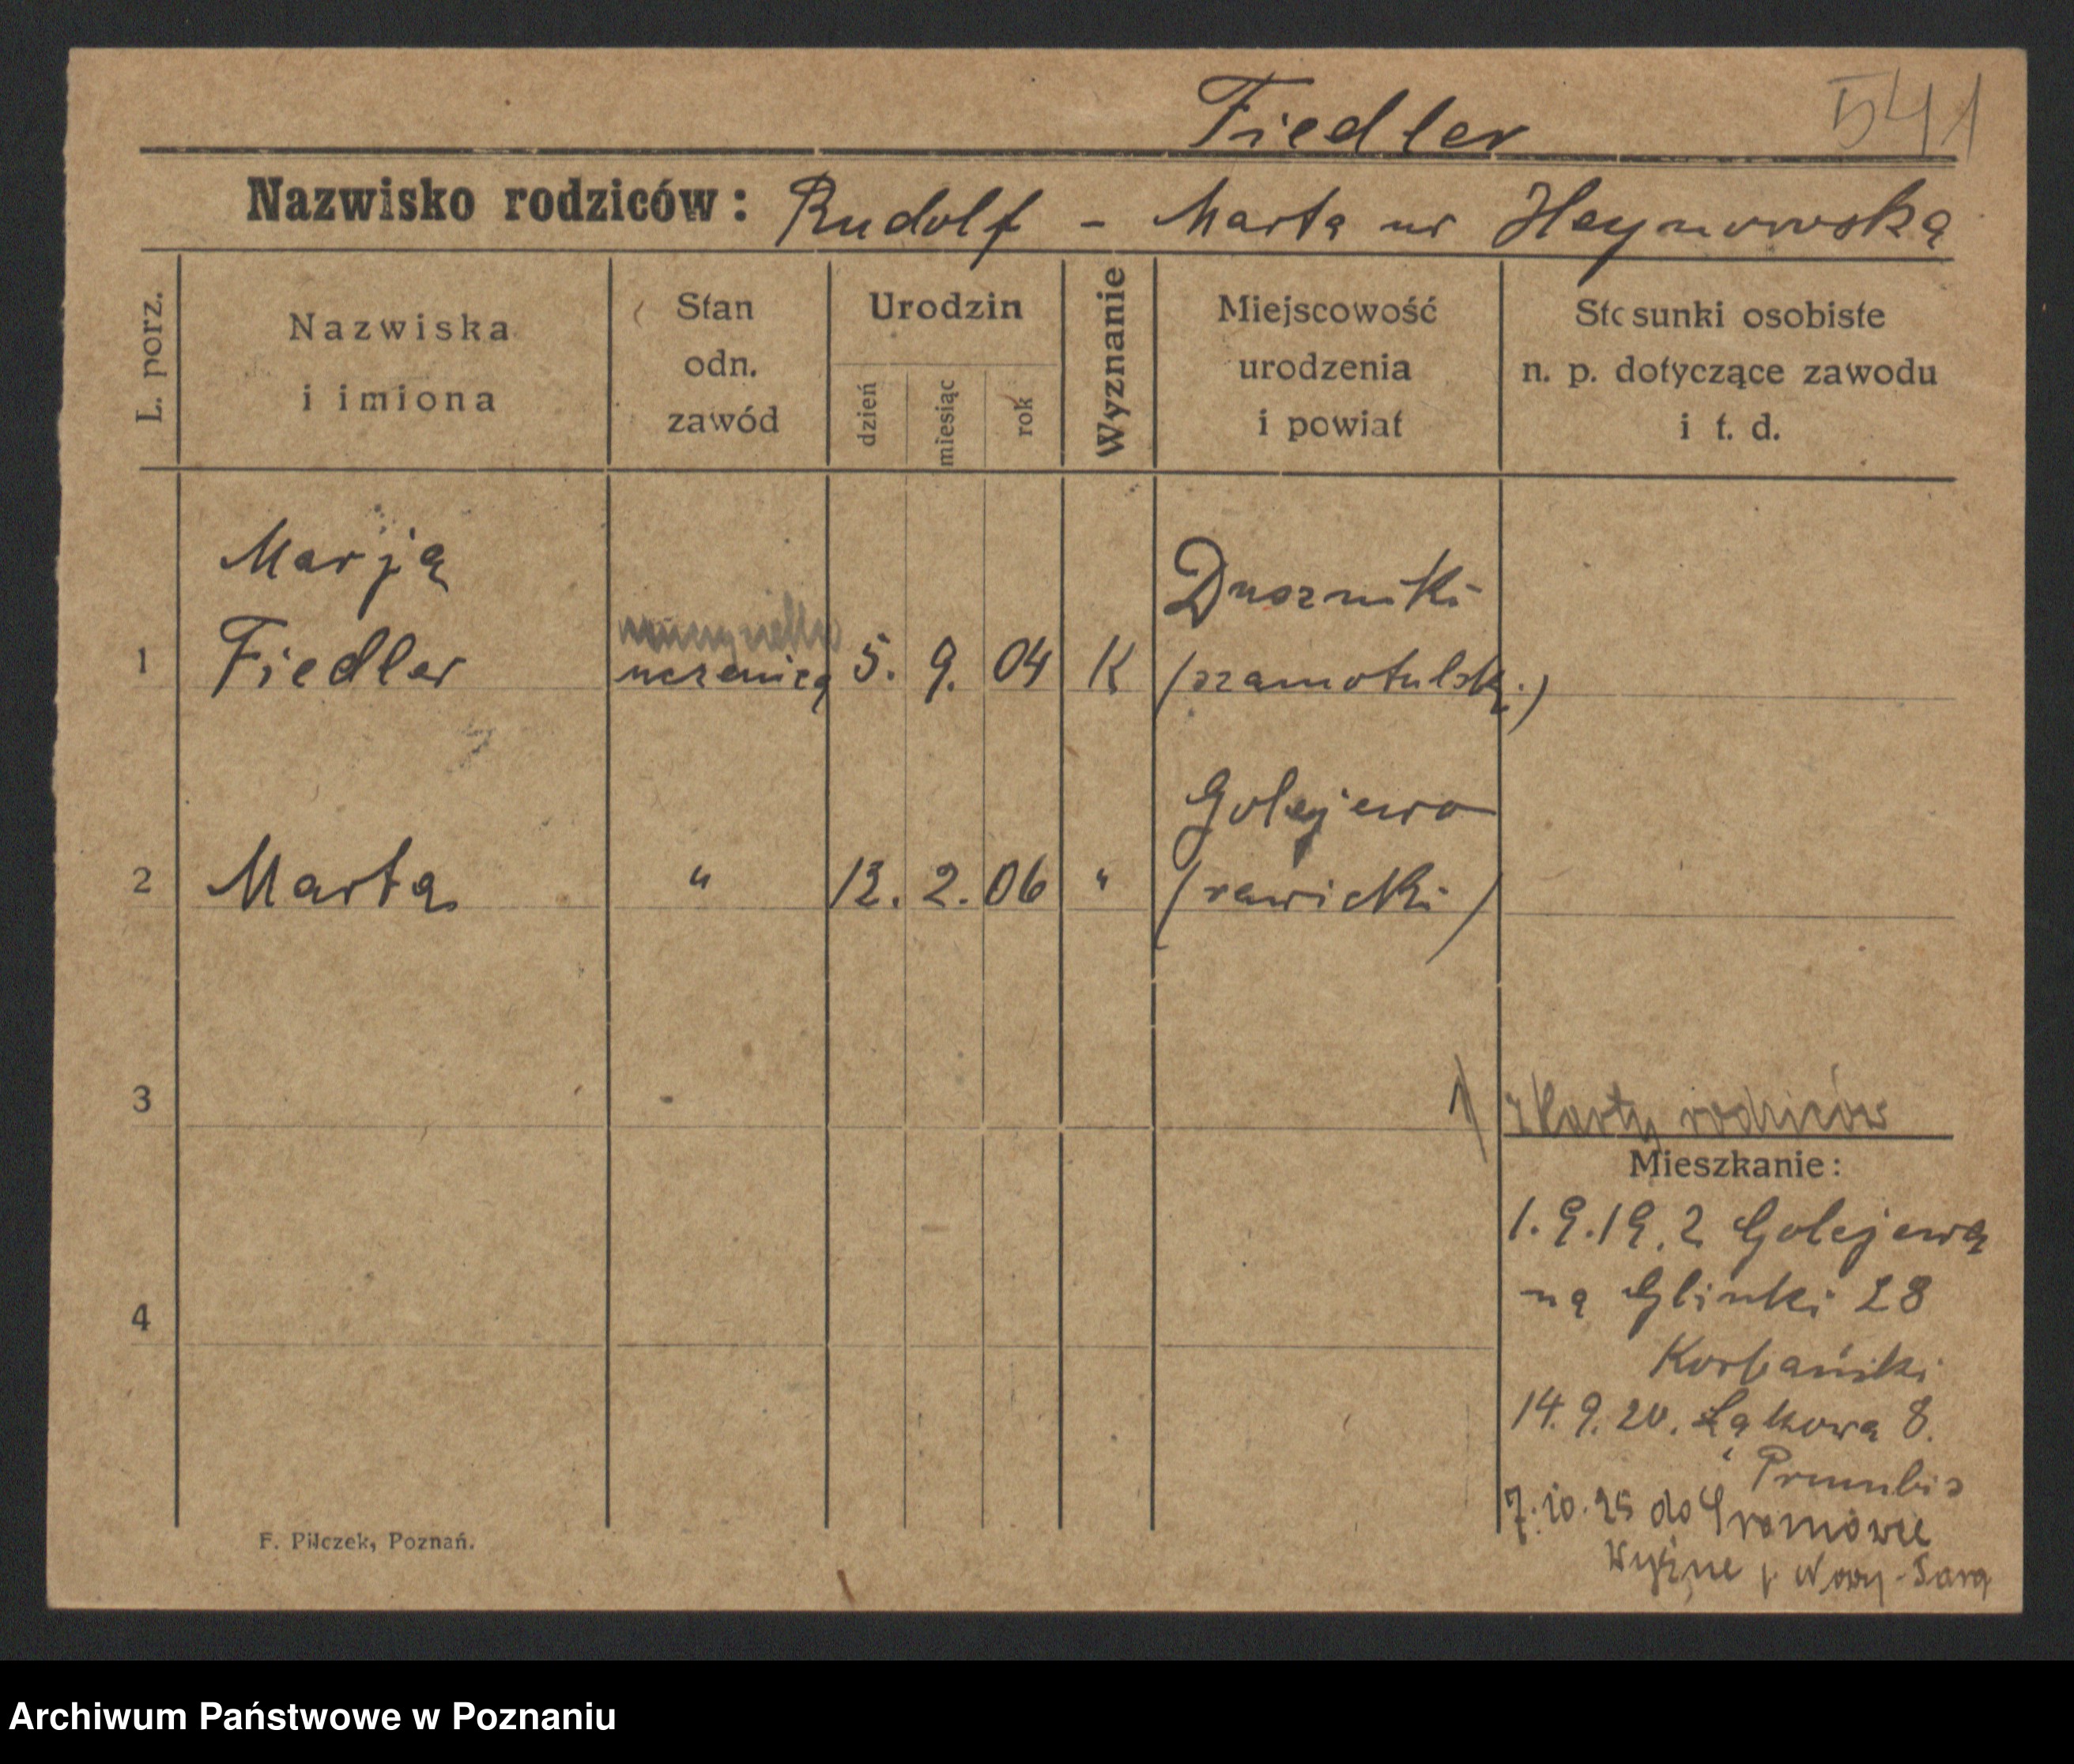 Fiedler 541
Nazwisko rodziców: Rudolf - Marta ur Heynowska
L. porz.
Nazwiska
i imiona
Stan
odn.
zawód
Urodzin
dzień
miesiąc
rok
Wyznanie
Miejscowość
urodzenia
i powiat
Stosunki osobiste
n. p. dotyczące zawodu
i t. d.
Marja
Duszniki
1 Fiedler uczenica 5. 9. 04 K (szamotulsk.)
Golejewo
2 Marta " 12. 2. 06 " (rawicki)
3
z karty rodziców
Mieszkanie:
1.9.19. z Golejewa
na Glinki 28
4
14.9.20. Łąkowa 8.
7.10.25 do Sromowce
Wyżne p. Nowy-Targ
F. Pilczek, Poznań.
Archiwum Państwowe w Poznaniu